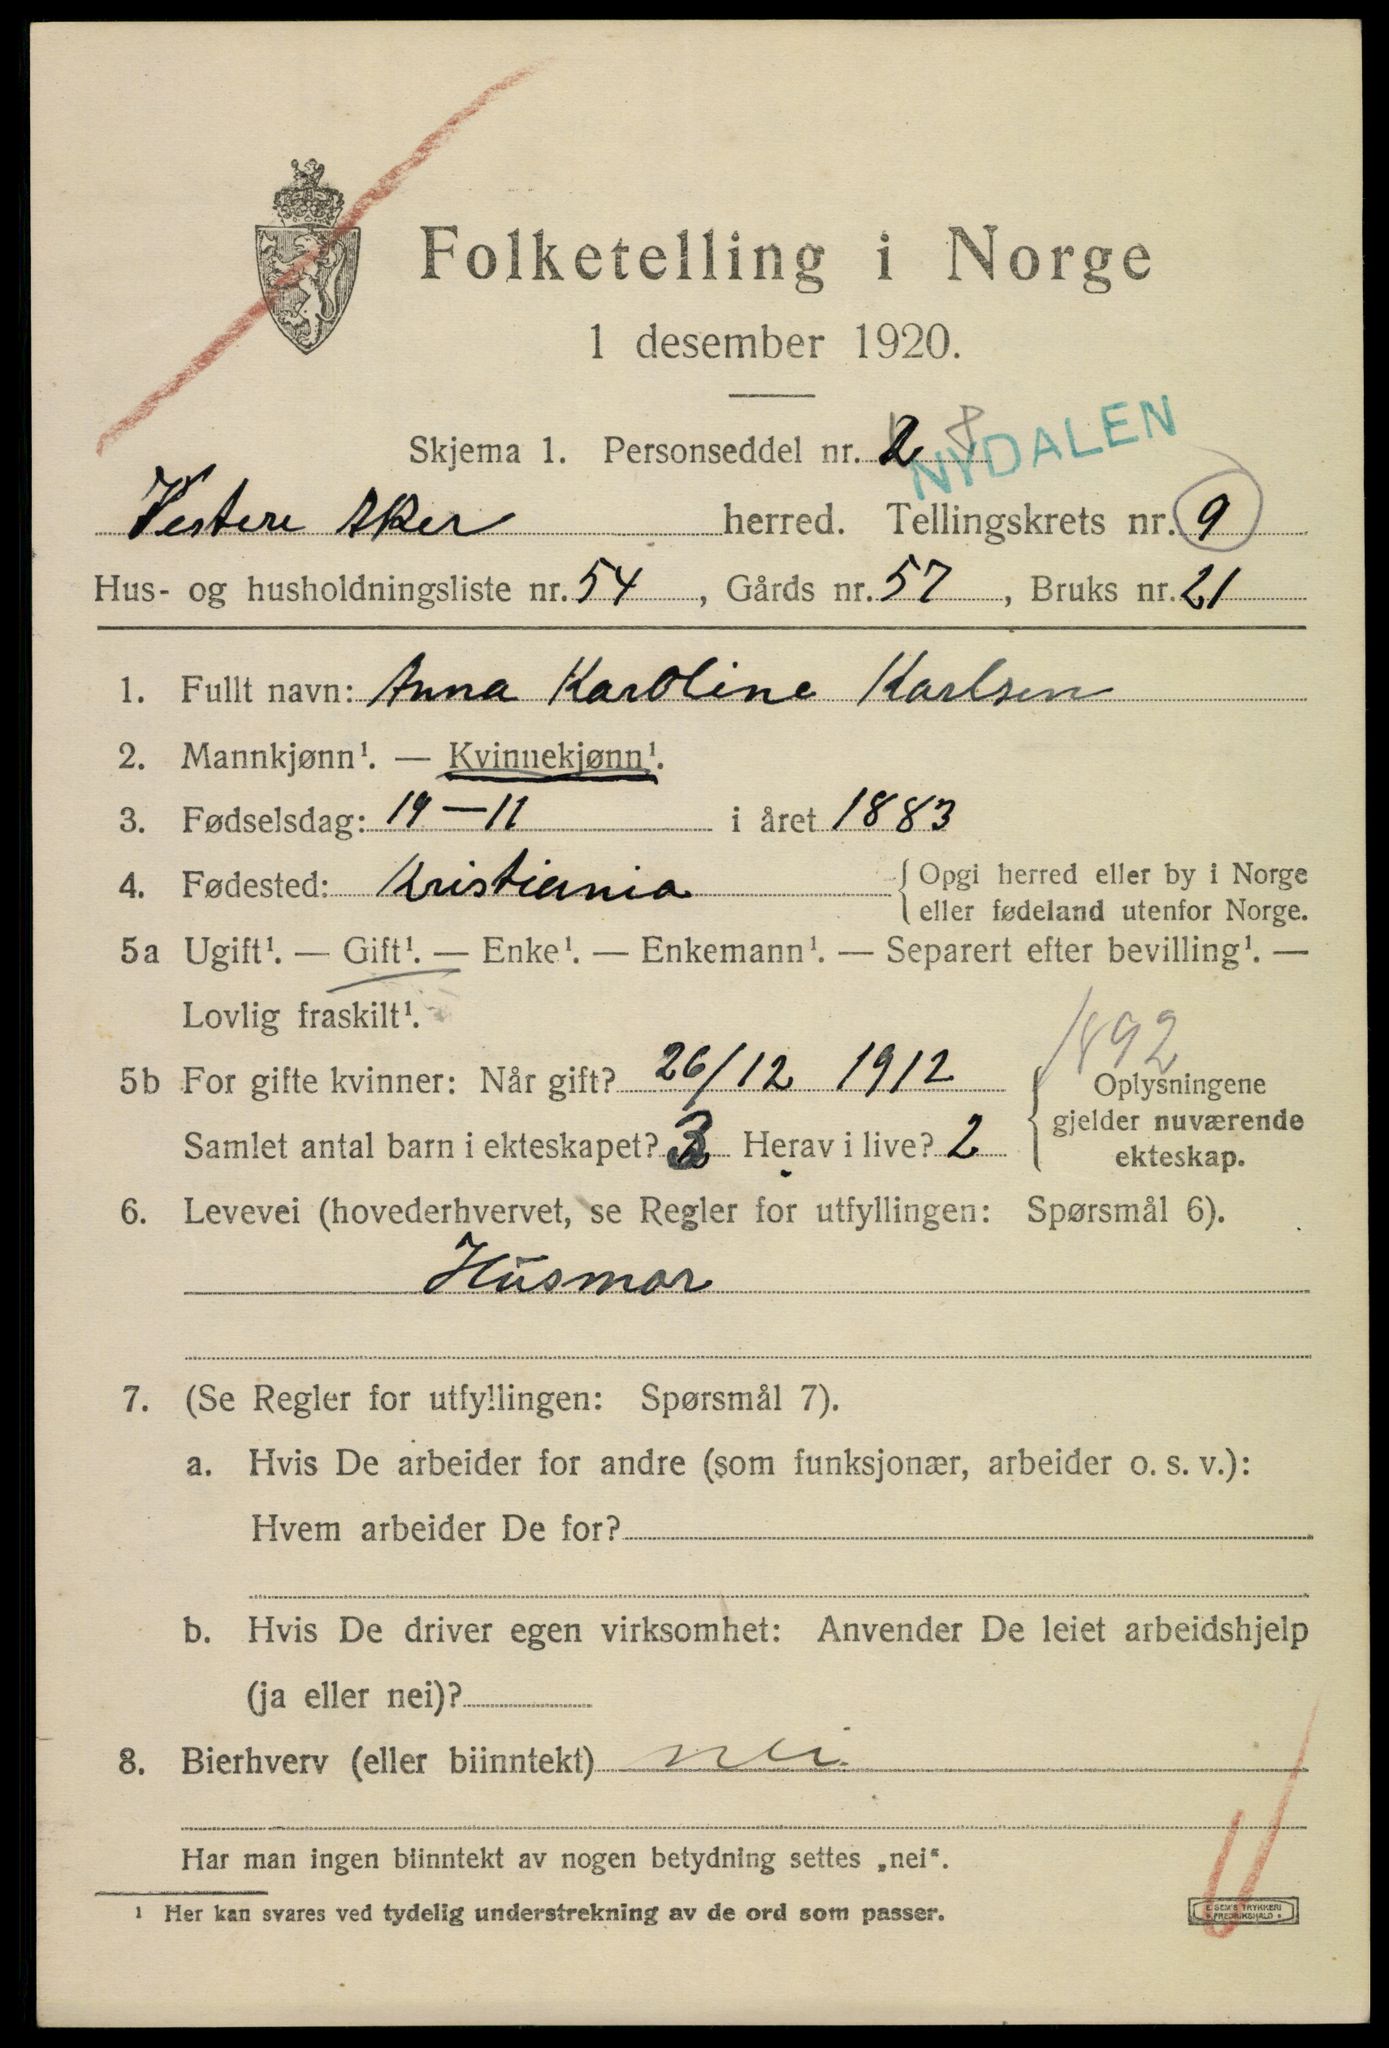 Folketelling i Norge
1 desember 1920.
Skjema 1. Personseddel nr. 2 8
NYDALEN
Vestere Aker herred. Tellingskrets nr. 9
Hus- og husholdningsliste nr. 54, Gårds nr. 57, Bruks nr. 21
1. Fullt navn: Anna Karoline Karlsen
2. Mannkjønn¹. — Kvinnekjønn¹.
3. Fødselsdag: 19—11 i året 1883
4. Fødested: Kristiania { Opgi herred eller by i Norge
eller fødeland utenfor Norge.
5a Ugift¹. — Gift¹. — Enke¹. — Enkemann¹. — Separert efter bevilling¹. —
Lovlig fraskilt¹.
1892
5b For gifte kvinner: Når gift? 26/12 1912 { Oplysningene
gjelder nuværende
Samlet antal barn i ekteskapet? 3 Herav i live? 2
ekteskap.
6. Levevei (hovederhvervet, se Regler for utfyllingen: Spørsmål 6).
Husmor
7. (Se Regler for utfyllingen: Spørsmål 7).
a. Hvis De arbeider for andre (som funksjonær, arbeider o. s. v.):
Hvem arbeider De for?
b. Hvis De driver egen virksomhet: Anvender De leiet arbeidshjelp
(ja eller nei)?
8. Bierhverv (eller biinntekt) nei
Har man ingen biinntekt av nogen betydning settes „nei".
¹ Her kan svares ved tydelig understrekning av de ord som passer.
E. SEM'S TRYKKERI
FREDRIKSHALD